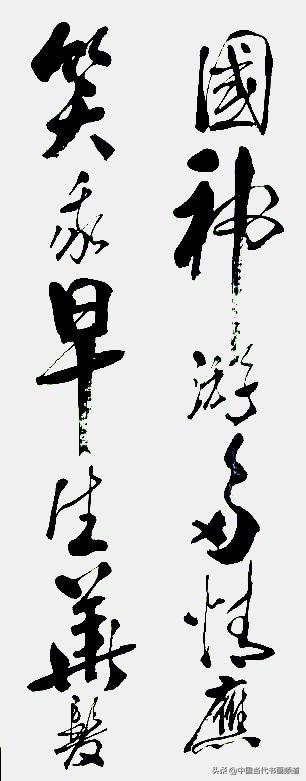 國神游多情應
笑我早生華髮
头条 @中国当代书画频道